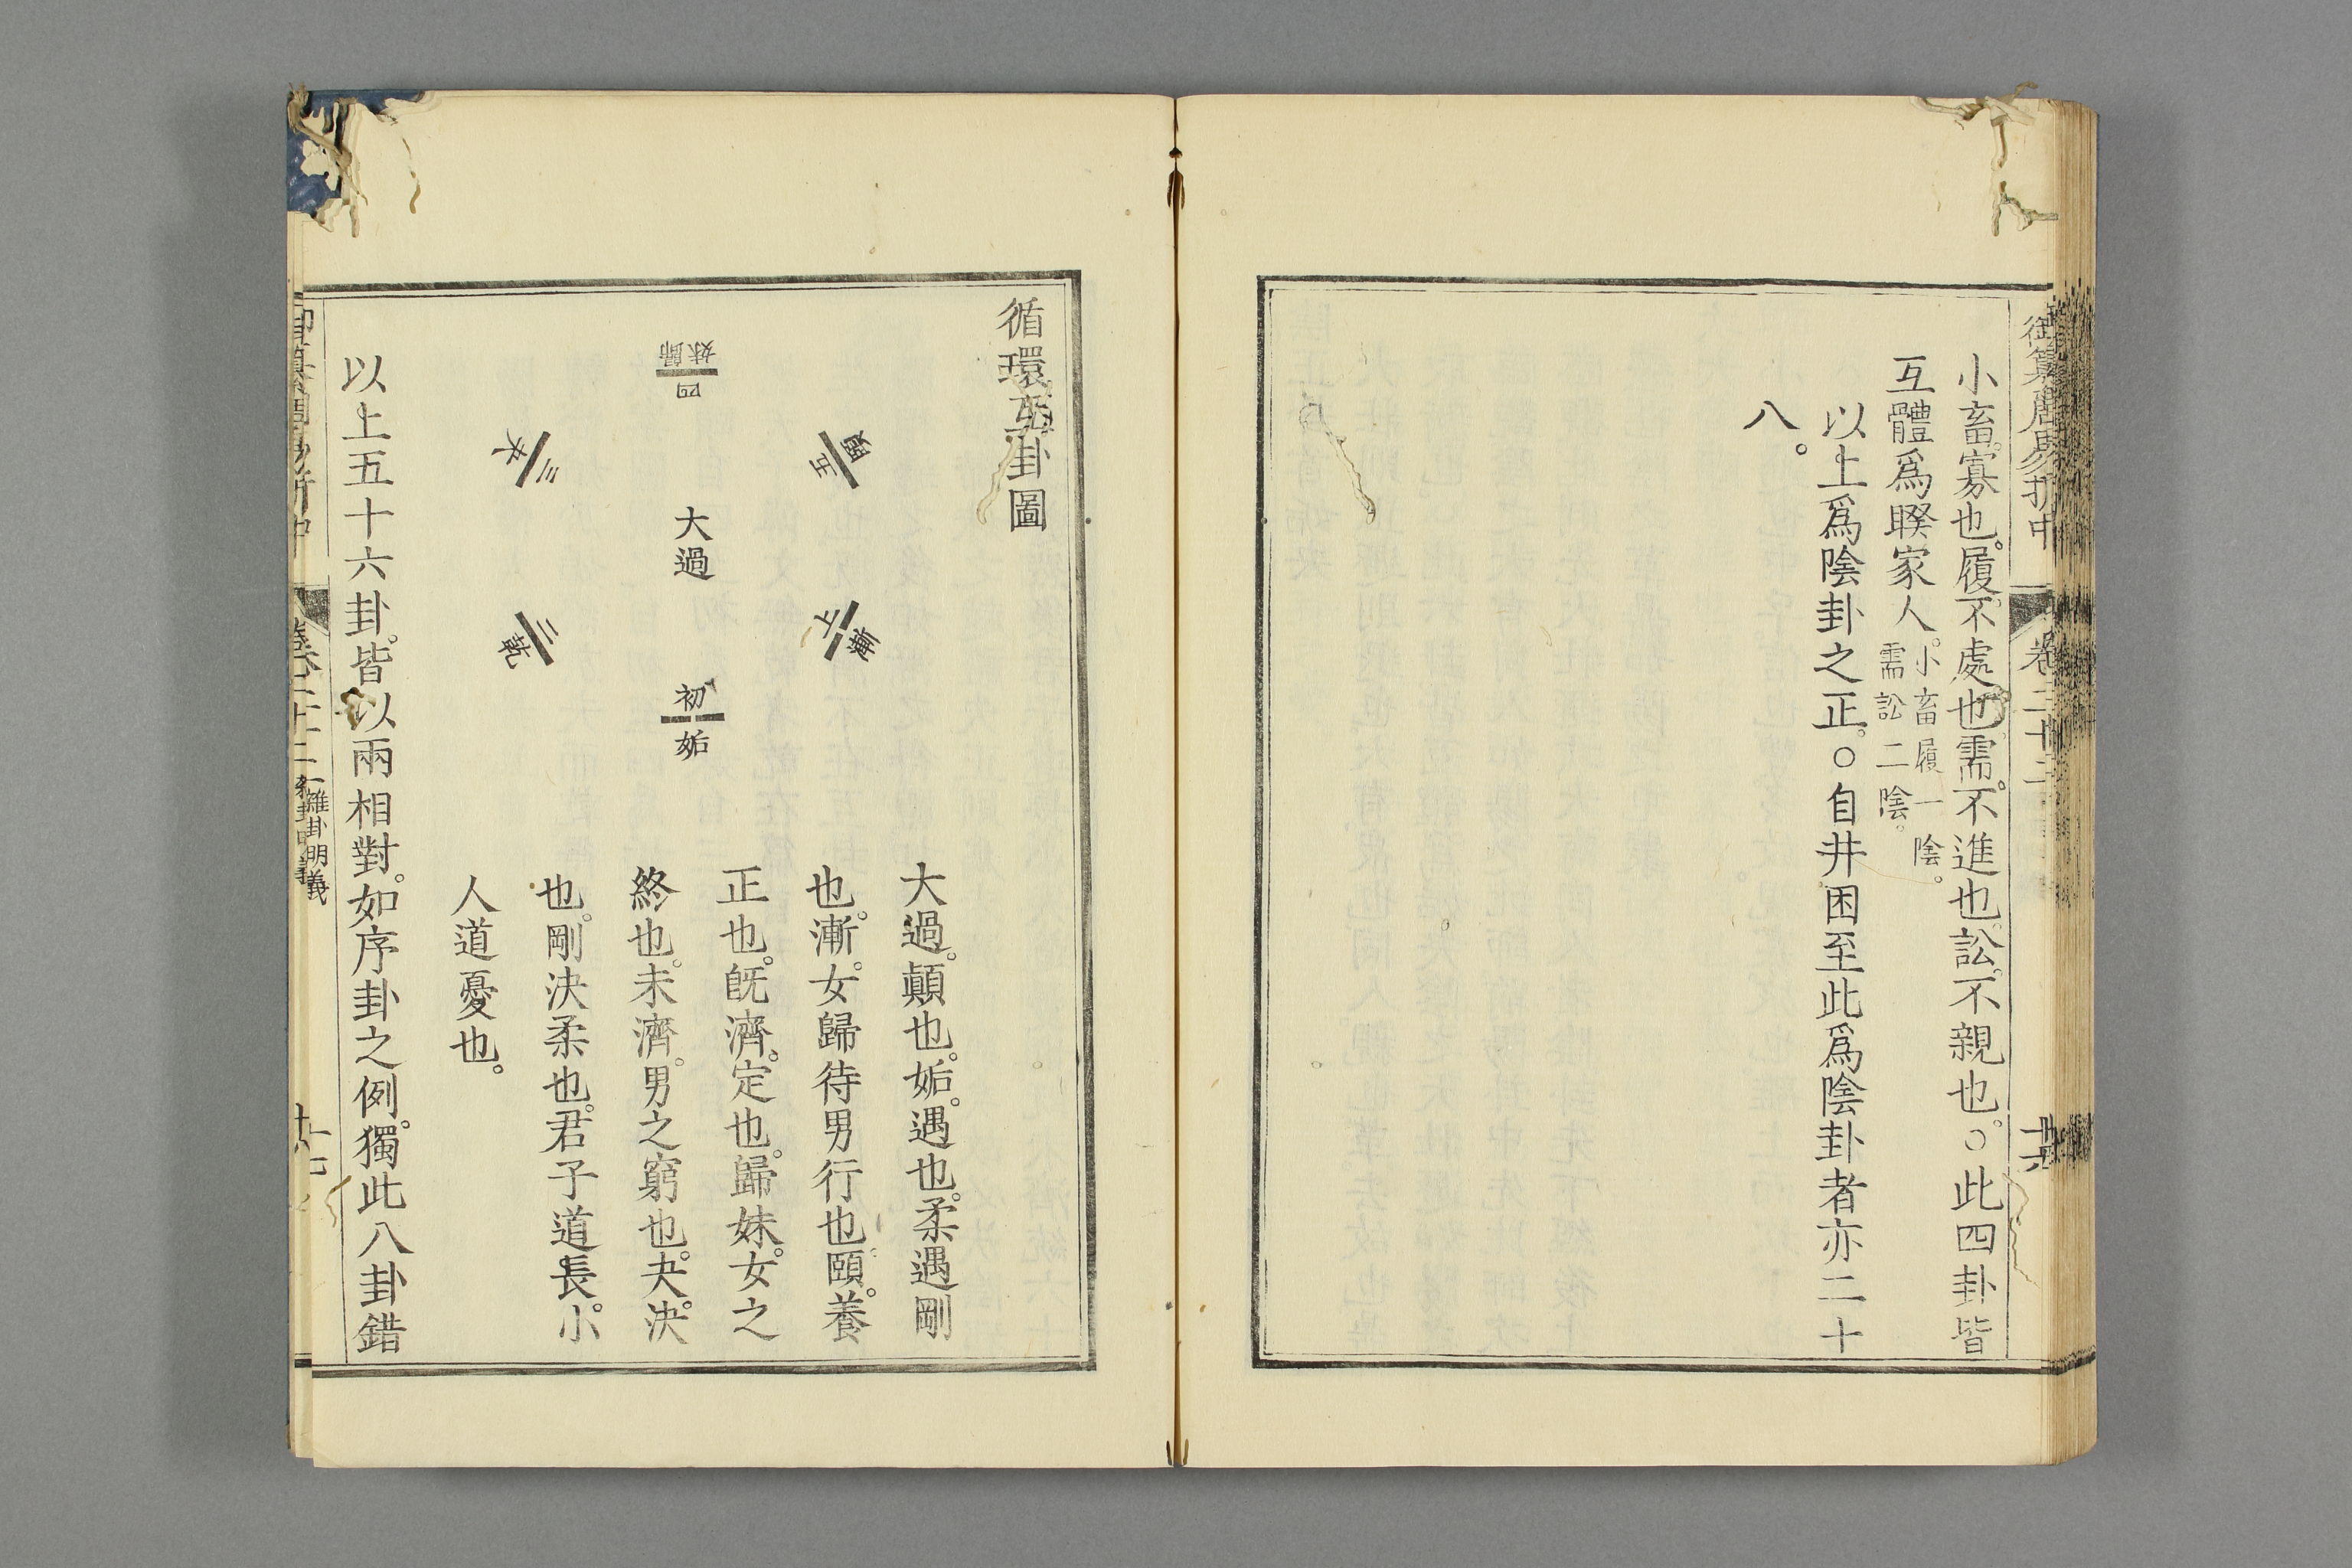 御纂周易折中
卷二十二
十六
小畜。寡也。履。不處也。需。不進也。訟。不親也。○此四卦皆
互體爲睽家人。小畜履一陰。需訟二陰。
以上爲陰卦之正。○自井困至此爲陰卦者亦二十
八。
循環互卦圖
大過
初 姤
二 乾
三 夬
四 歸妹
五 頤
六 漸
大過。顛也。姤。遇也。柔遇剛
也。漸。女歸待男行也。頤。養
正也。旣濟。定也。歸妹。女之
終也。未濟。男之窮也。夬。決
也。剛決柔也。君子道長。小
人道憂也。
以上五十六卦。皆以兩相對。如序卦之例。獨此八卦錯
御纂周易折中
卷二十二 雜卦明義
十七